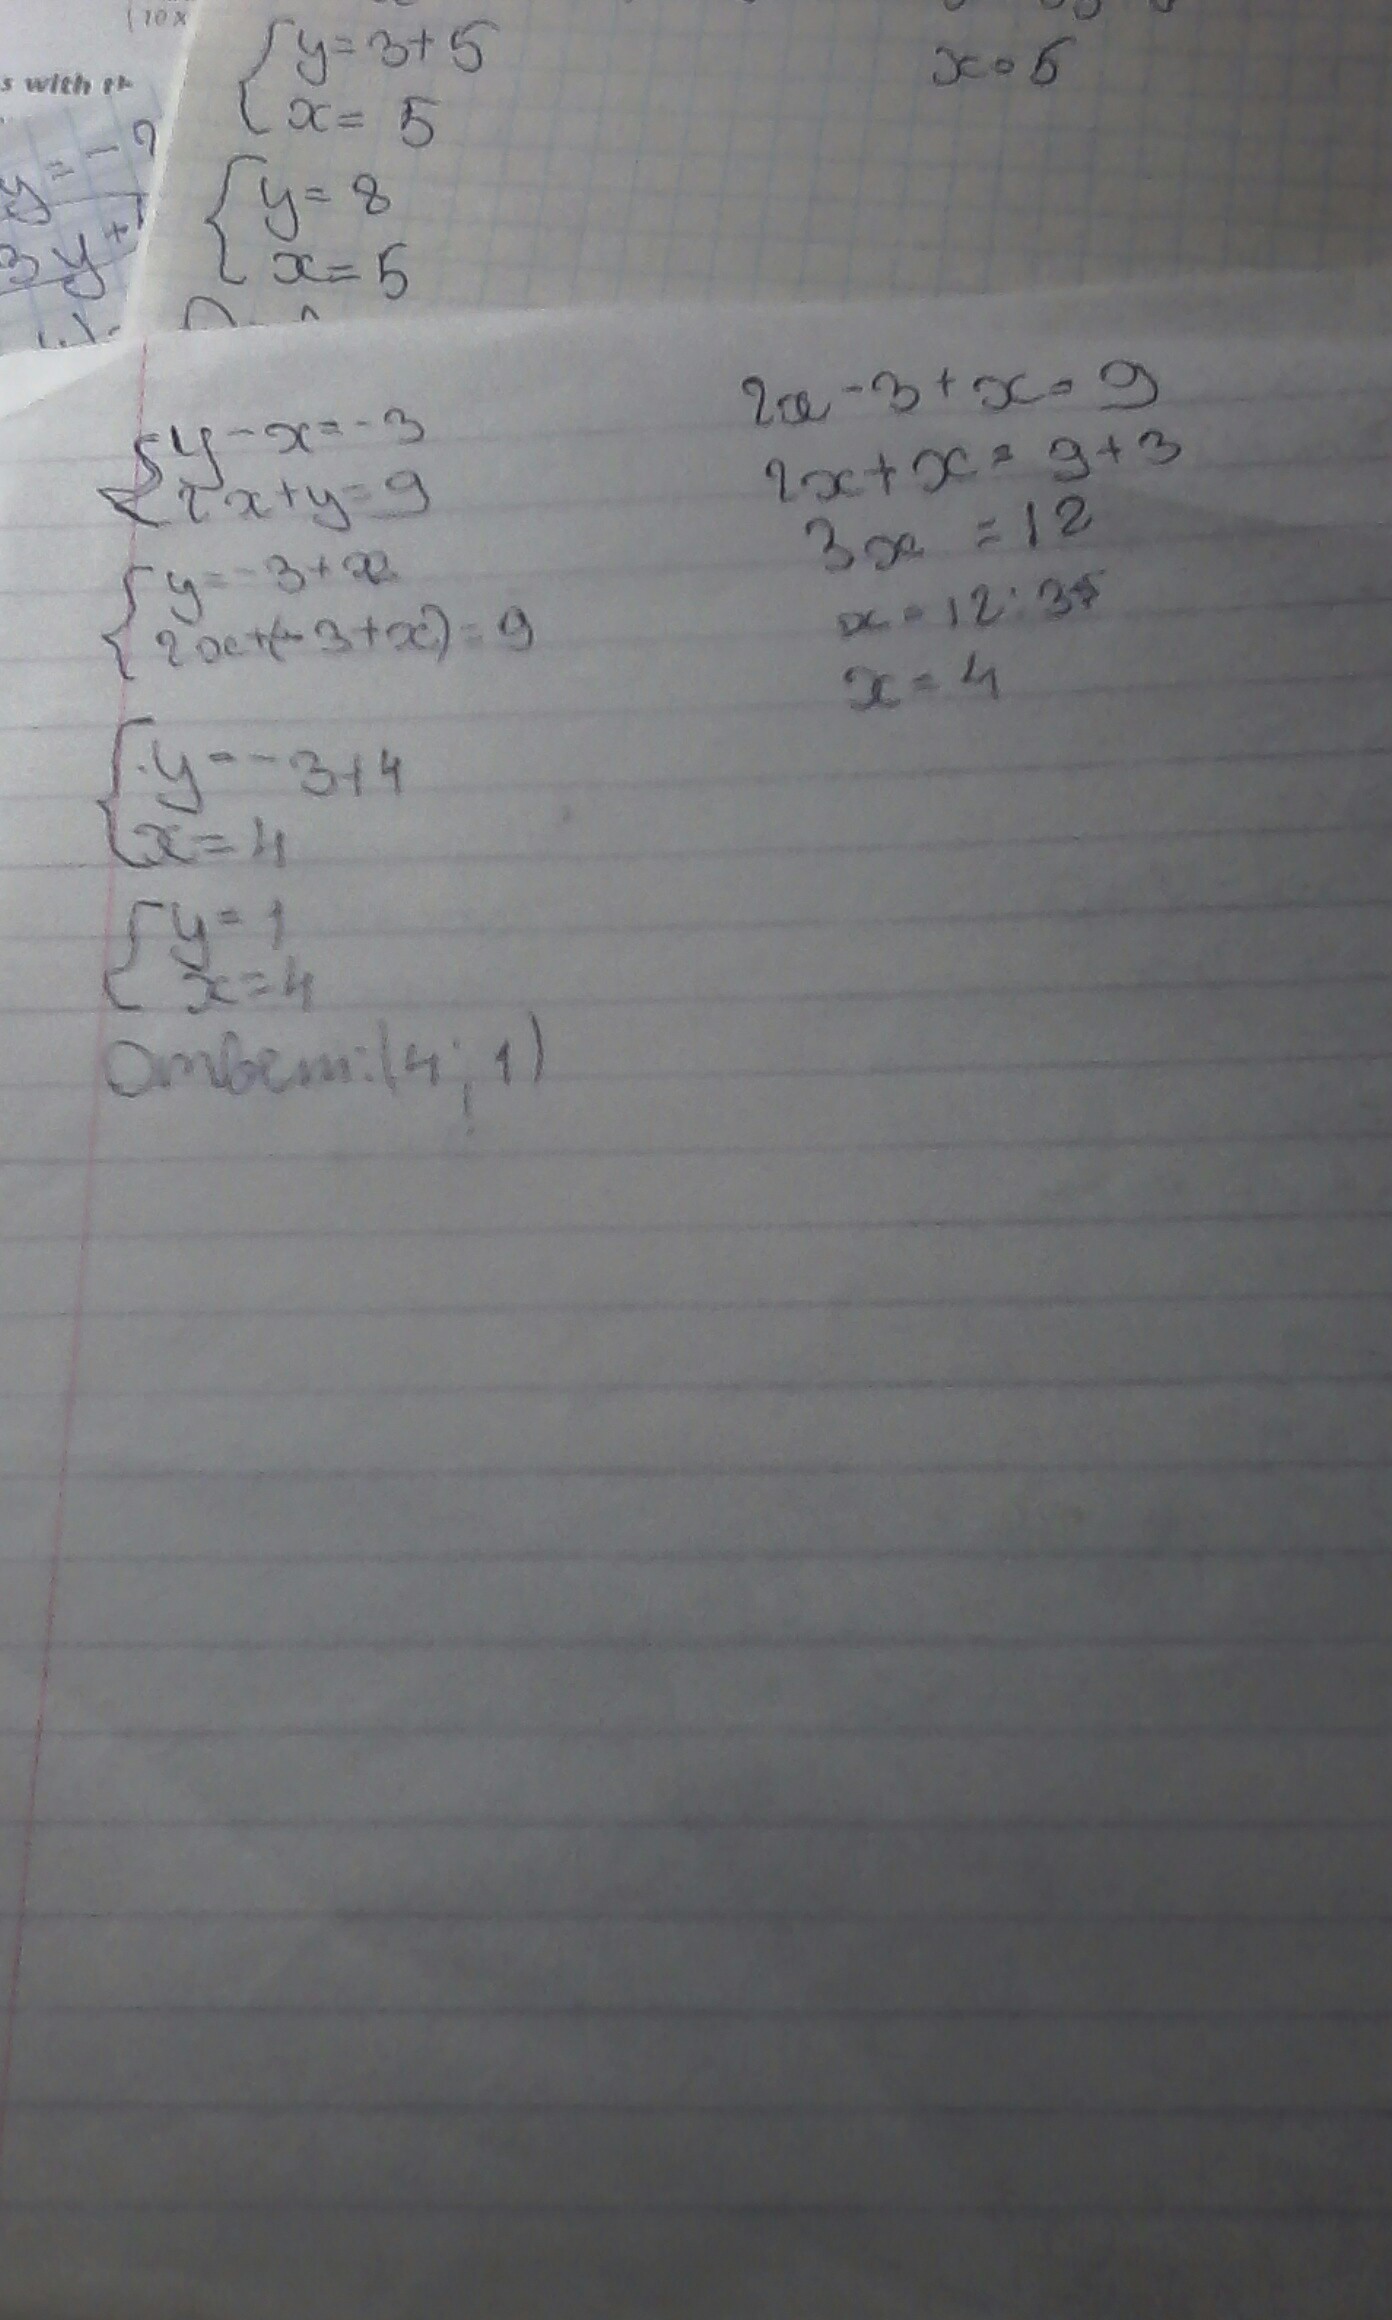 (10x
s with th
y = - 2
3y +
{ y = 3 + 5
x = 5
{ y = 8
x = 5
x = 5
{ y - x = - 3
2x + y = 9
{ y = - 3 + x
2x + (- 3 + x) = 9
{ y = - 3 + 4
x = 4
{ y = 1
x = 4
Ответ: (4; 1)
2x - 3 + x = 9
2x + x = 9 + 3
3x = 12
x = 12 : 3
x = 4